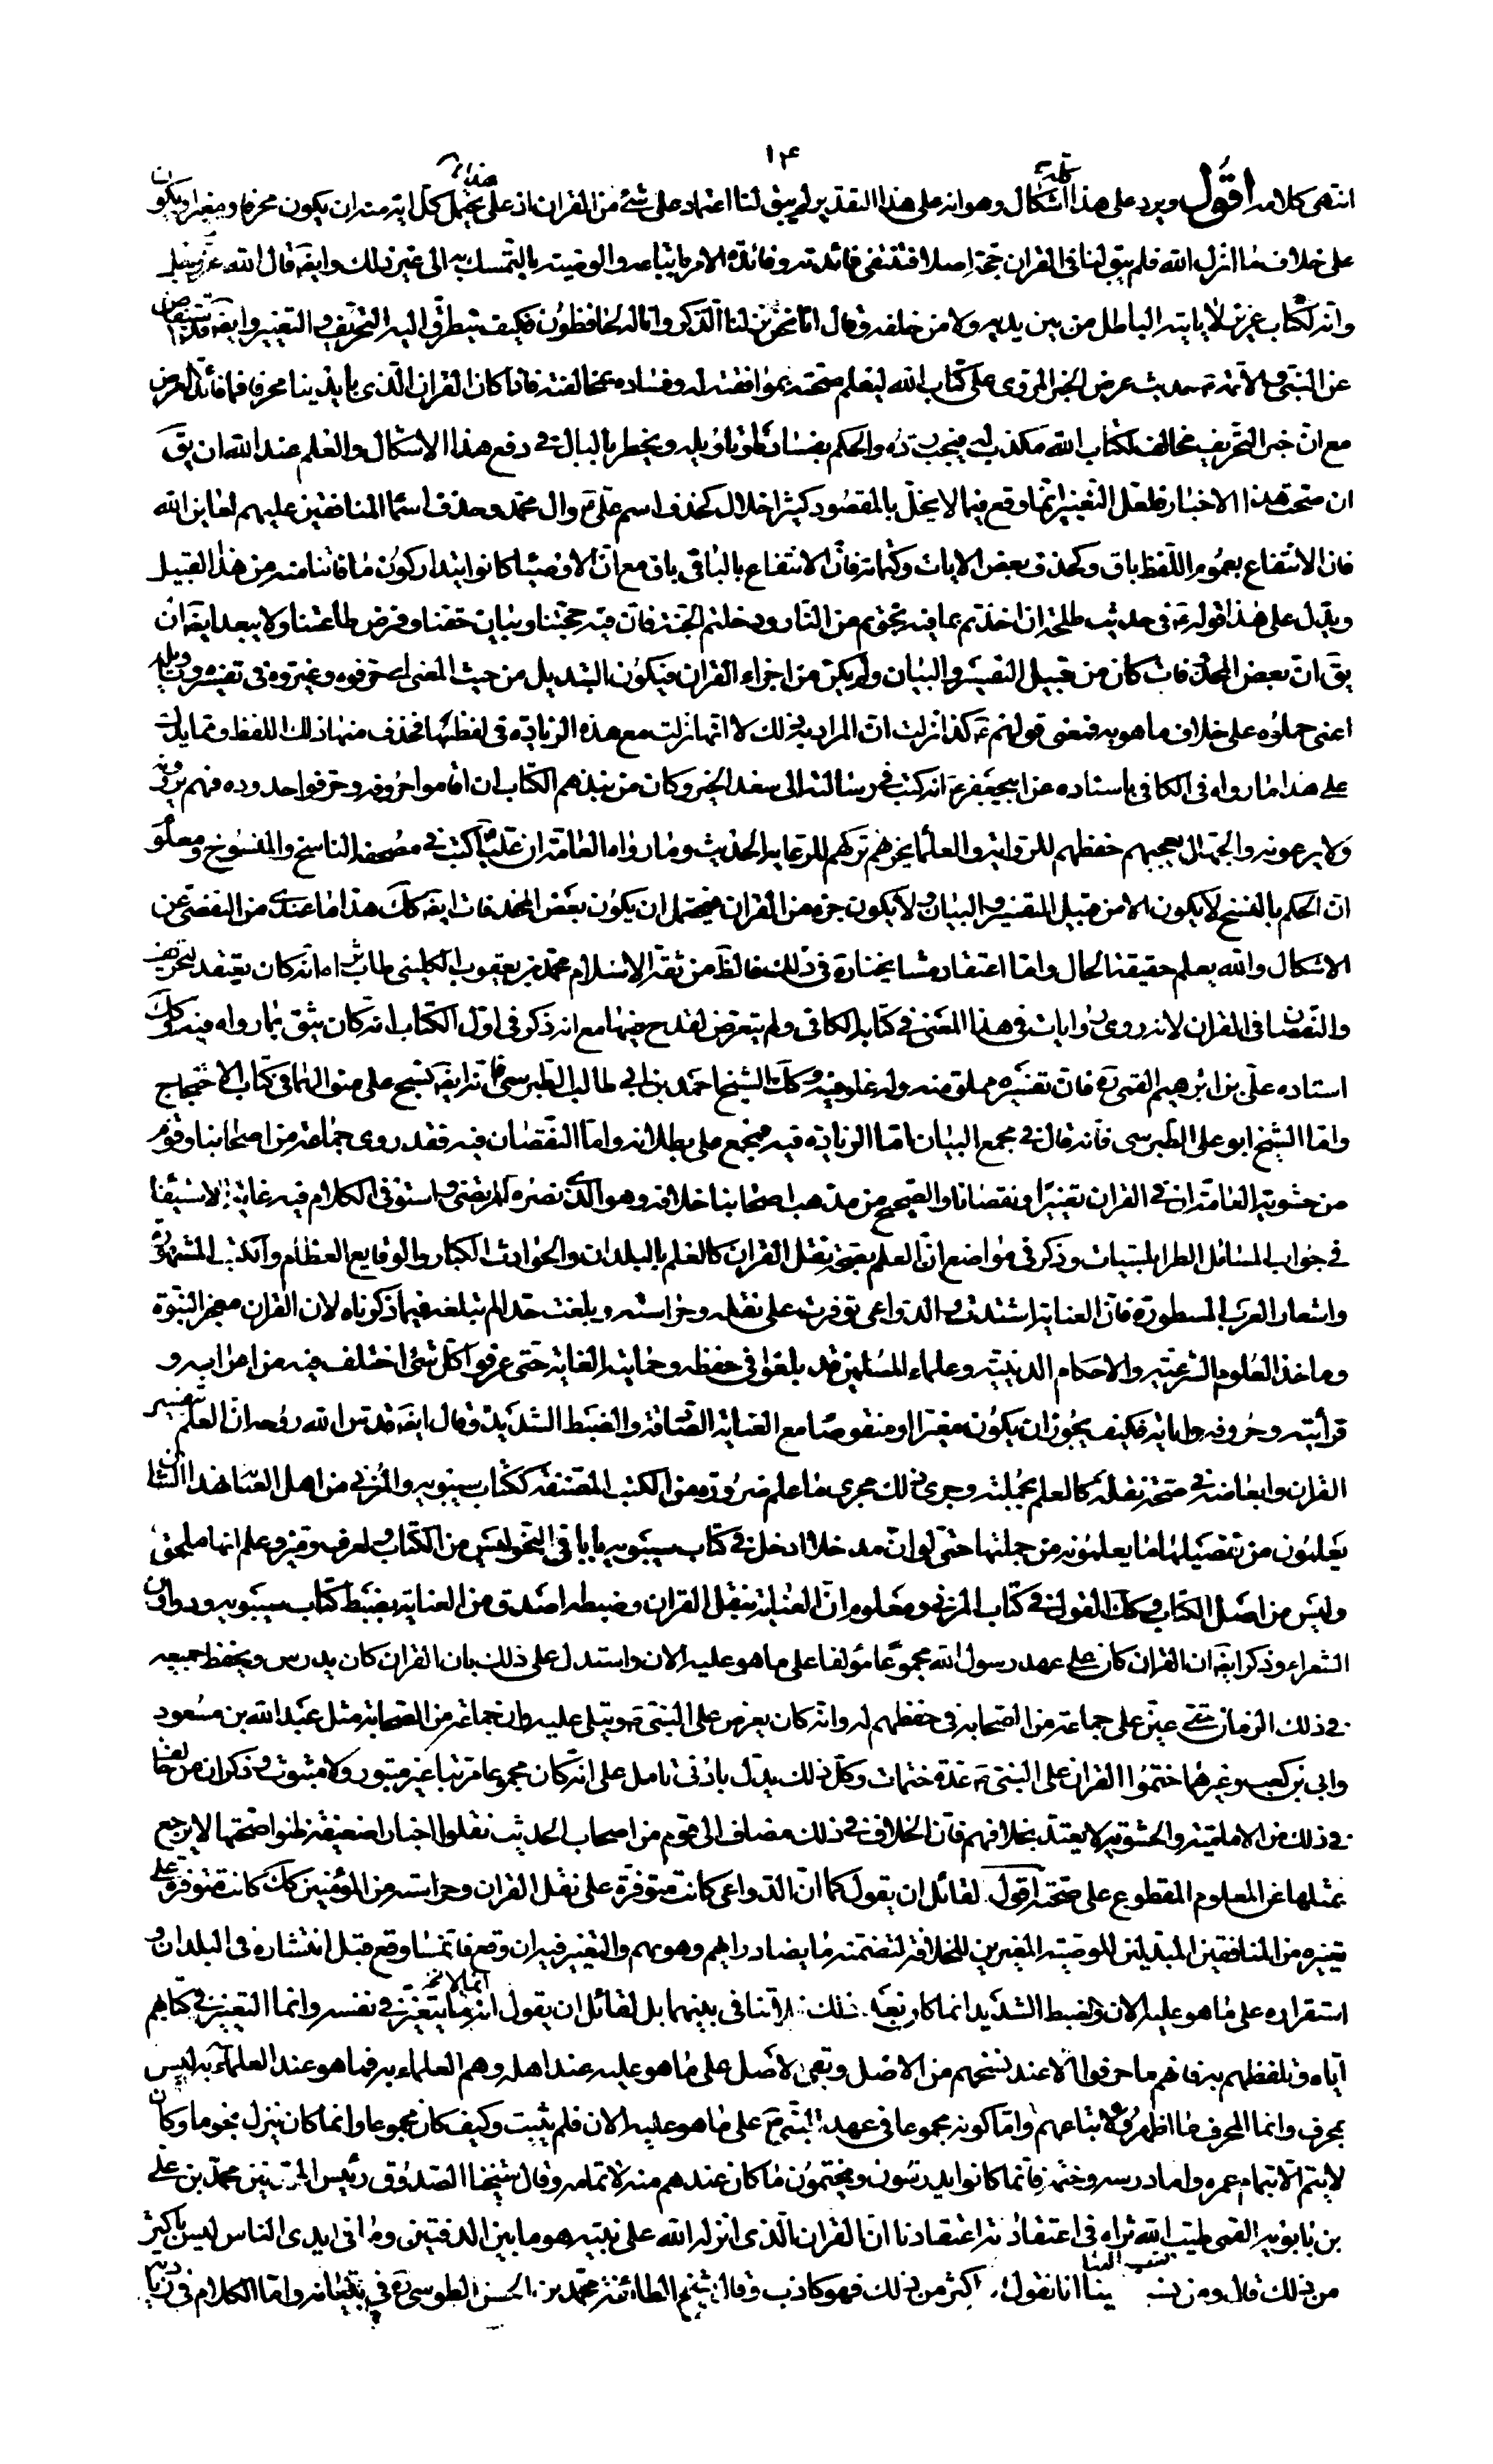 ۱۴
انتهى كلامه اقول ويرد على هذا كله اشكال وهو انه على هذا التقدير لم يبق لنا اعتماد على شئ من القران اذ على هذا يحتمل كل اية منه ان يكون محرفا ومغيرا ويكون
على خلاف ما انزل الله فلم يبق لنا فى القران حجة اصلا فتنتفى فائدته وفائدة الامر باتباعه والوصية بالتمسك به الى غير ذلك وايضَ قال الله عز وجل
وانه لكتاب عزيز لا ياتيه الباطل من بين يديه ولا من خلفه وقال انا نحن نزلنا الذكر وانا له لحافظون فكيف يتطرق اليه التحريف والتغيير وايضَ قد استفاض
عن النبى والائمة حديث عرض الخبر المروى على كتاب الله ليعلم صحته بموافقته له وفساده بمخالفته فاذا كان القران الذى بايدينا محرفا فما فائدة العرض
مع ان خبر التحريف مخالف لكتاب الله مكذب له فيجب رده والحكم بفساده او تاويله ويخطر بالبال فى دفع هذا الاشكال والعلم عند الله ان يقَ
ان صحت هذه الاخبار فلعل التغيير انما وقع فيما لا يخل بالمقصود كثير اخلال كحذف اسم على وال محمد وحذف اسماء المنافقين عليهم لعاين الله
فان الانتفاع بعموم اللفظ باق وكحذف بعض الايات وكتمانه فان الانتفاع بالباقى باق مع ان الاوصياء كانوا يتداركون ما فاتنا منه من هذا القبيل
ويدل على هذا قوله ع فى حديث طلحة ان اخذتم بما فيه نجوتم من النار ودخلتم الجنة فان فيه حجتنا وبيان حقنا وفرض طاعتنا ولا يبعد ايضَ ان
يقَ ان بعض المحذوفات كان من قبيل التفسير والبيان ولم يكن من اجزاء القران فيكون التبديل من حيث المعنى اى حرفوه وغيروه فى تفسيره وتاويله
اعنى حملوه على خلاف ما هو به فمعنى قولهم ع كذا نزلت ان المراد به ذلك لا انها نزلت مع هذه الزيادة فى لفظها فحذف منها ذلك اللفظ ومما يدل
على هذا ما رواه فى الكافى باسناده عن ابيجعفر ع انه كتب فى رسالته الى سعد الخير وكان من نبذهم الكتاب ان اقاموا حروفه وحرفوا حدوده فهم يروونه
ولا يرعونه والجهال يعجبهم حفظهم للرواية والعلماء يحزنهم تركهم للرعاية الحديث وما رواه العامة ان عليا ع كتب فى مصحفه الناسخ والمنسوخ ومعلوم
ان الحكم بالنسخ لا يكون الا من قبيل التفسير والبيان ولا يكون جزء من القران فيحتمل ان يكون بعض المحذوفات ايضَ كك هذا ما عندى من التفصى عن
الاشكال والله يعلم حقيقة الحال واما اعتقاد مشايخنا ره فى ذلك فالظ من ثقة الاسلام محمد بن يعقوب الكلينى طاب ثراه انه كان يعتقد التحريف
والنقصان فى القران لانه روى روايات فى هذا المعنى فى كتابه الكافى ولم يتعرض لقدح فيها مع انه ذكر فى اول الكتاب انه كان يثق بما رواه فيه وكك
استاده على بن ابرهيم القمى ره فان تفسيره مملو منه وله غلو فيه وكك الشيخ احمد بن ابى طالب الطبرسى فانه ايضَ نسج على منوالهما فى كتاب الاحتجاج
واما الشيخ ابو على الطبرسى فانه قال فى مجمع البيان اما الزيادة فيه فمجمع على بطلانه واما النقصان فيه فقد روى جماعة من اصحابنا وقوم
من حشوية العامة ان فى القران تغييرا ونقصانا والصحيح من مذهب اصحابنا خلافه وهو الذى نصره المرتضى واستوفى الكلام فيه غاية الاستيفا
فى جواب المسائل الطرابلسيات وذكر فى مواضع ان العلم بصحة نقل القران كالعلم بالبلدان والحوادث الكبار والوقايع العظام والكتب المشهورة
واشعار العرب المسطورة فان العناية اشتدت والدواعى توفرت على نقله وحراسته وبلغت حدا لم تبلغه فيما ذكرناه لان القران معجز النبوة
وماخذ العلوم الشرعية والاحكام الدينية وعلماء المسلمين قد بلغوا فى حفظه وحمايته الغاية حتى عرفوا كل شئ اختلف فيه من اعرابه و
قرائته وحروفه واياته فكيف يجوز ان يكون مغيرا او منقوصا مع العناية الصادقة والضبط الشديد وقال ايضَ قدس الله روحه ان العلم بتفسير
القران وابعاضه فى صحة نقله كالعلم بجملته وجرى ذلك مجرى ما علم ضرورة من الكتب المصنفة ككتاب سيبويه والمزنى فان اهل العناية بهذا الشان
يعلمون من تفصيلها ما يعلمونه من جملتها حتى لو ان مدخلا ادخل فى كتاب سيبويه بابا فى النحو ليس من الكتاب لعرف وميز وعلم انها ملحق
وليس من اصل الكتاب وكك القول فى كتاب المزنى ومعلوم ان العناية بنقل القران وضبطه اصدق من العناية بضبط كتاب سيبويه ودواوين
الشعراء وذكر ايضَ ان القران كان على عهد رسول الله مجموعا مؤلفا على ما هو عليه الان واستدل على ذلك بان القران كان يدرس ويحفظ جميعه
فى ذلك الزمان حتى عين على جماعة من الصحابة فى حفظهم له وانه كان يعرض على النبى ص ويتلى عليه وان جماعة من الصحابة مثل عبد الله بن مسعود
وابى بن كعب وغيرهما ختموا القران على النبى ص عدة ختمات وكل ذلك يدل بادنى تامل على انه كان مجموعا مرتبا غير مبتور ولا مبثوث وذكر ان من خالف
فى ذلك من الامامية والحشوية لا يعتد بخلافهم فان الخلاف فى ذلك مضاف الى قوم من اصحاب الحديث نقلوا اخبارا ضعيفة ظنوا صحتها لا يرجع
بمثلها عن المعلوم المقطوع على صحته اقول لقائل ان يقول كما ان الدواعى كانت متوفرة على نقل القران وحراسته من المؤمنين كك كانت متوفرة على
تغييره من المنافقين المبدلين للوصية المغيرين للخلافة لتضمنه ما يضاد رايهم وهويهم والتغيير فيه ان وقع فانما وقع قبل انتشاره فى البلدان و
استقراره على ما هو عليه الان والضبط الشديد انما كان بعد ذلك فلا تنافى بينهما بل لقائل ان يقول انه ما يتغير فى نفسه وانما التغيير فى كتابتهم
اياه وتلفظهم به فانهم ما حرفوا الا عند نسخهم من الاصل وبقى الاصل على ما هو عليه عند اهله وهم العلماء به فما هو عند العلماء به ليس
بمحرف وانما المحرف ما اظهروه لاتباعهم واما كونه مجموعا فى عهد النبى ص على ما هو عليه الان فلم يثبت وكيف كان مجموعا وانما كان ينزل نجوما وكان
لا يتم الا بتمام عمره واما درسه وختمه فانما كانوا يدرسون ويختمون ما كان عندهم منه لا تمامه وقال شيخنا الصدوق رئيس المحدثين محمد بن على
بن بابويه القمى طيب الله ثراه فى اعتقاداته اعتقادنا ان القران الذى انزله الله على نبيه هو ما بين الدفتين وما فى ايدى الناس ليس باكثر
من ذلك قال ومن نسب الينا انا نقول اكثر من ذلك فهو كاذب وقال شيخ الطائفة محمد بن الحسن الطوسى ره فى تبيانه واما الكلام فى زيادته